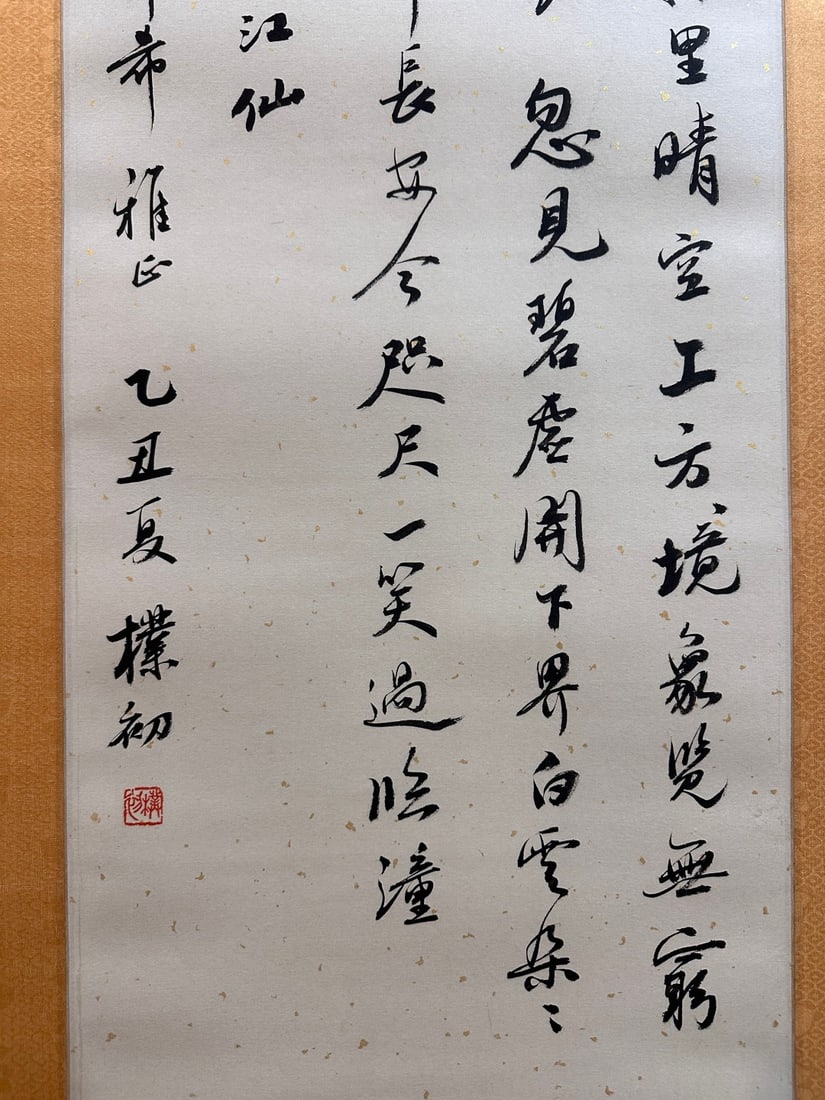 里晴空工方境象覽無窮
忽見碧虛開下界白雲朵〻
長安今咫尺一笑過臨潼
江仙
希 雅正 乙丑夏 樸初
樸初